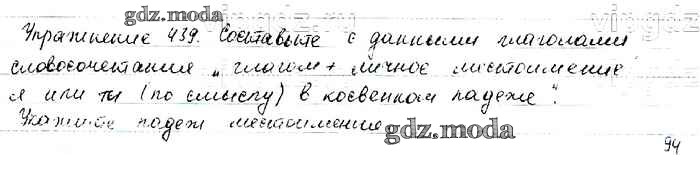 gdz.moda
Упражнение 439. Составьте с данными глаголами
словосочетания „глагол + личное местоимение
я или ты (по смыслу) в косвенном падеже".
Укажите падеж местоимения
gdz.moda
94